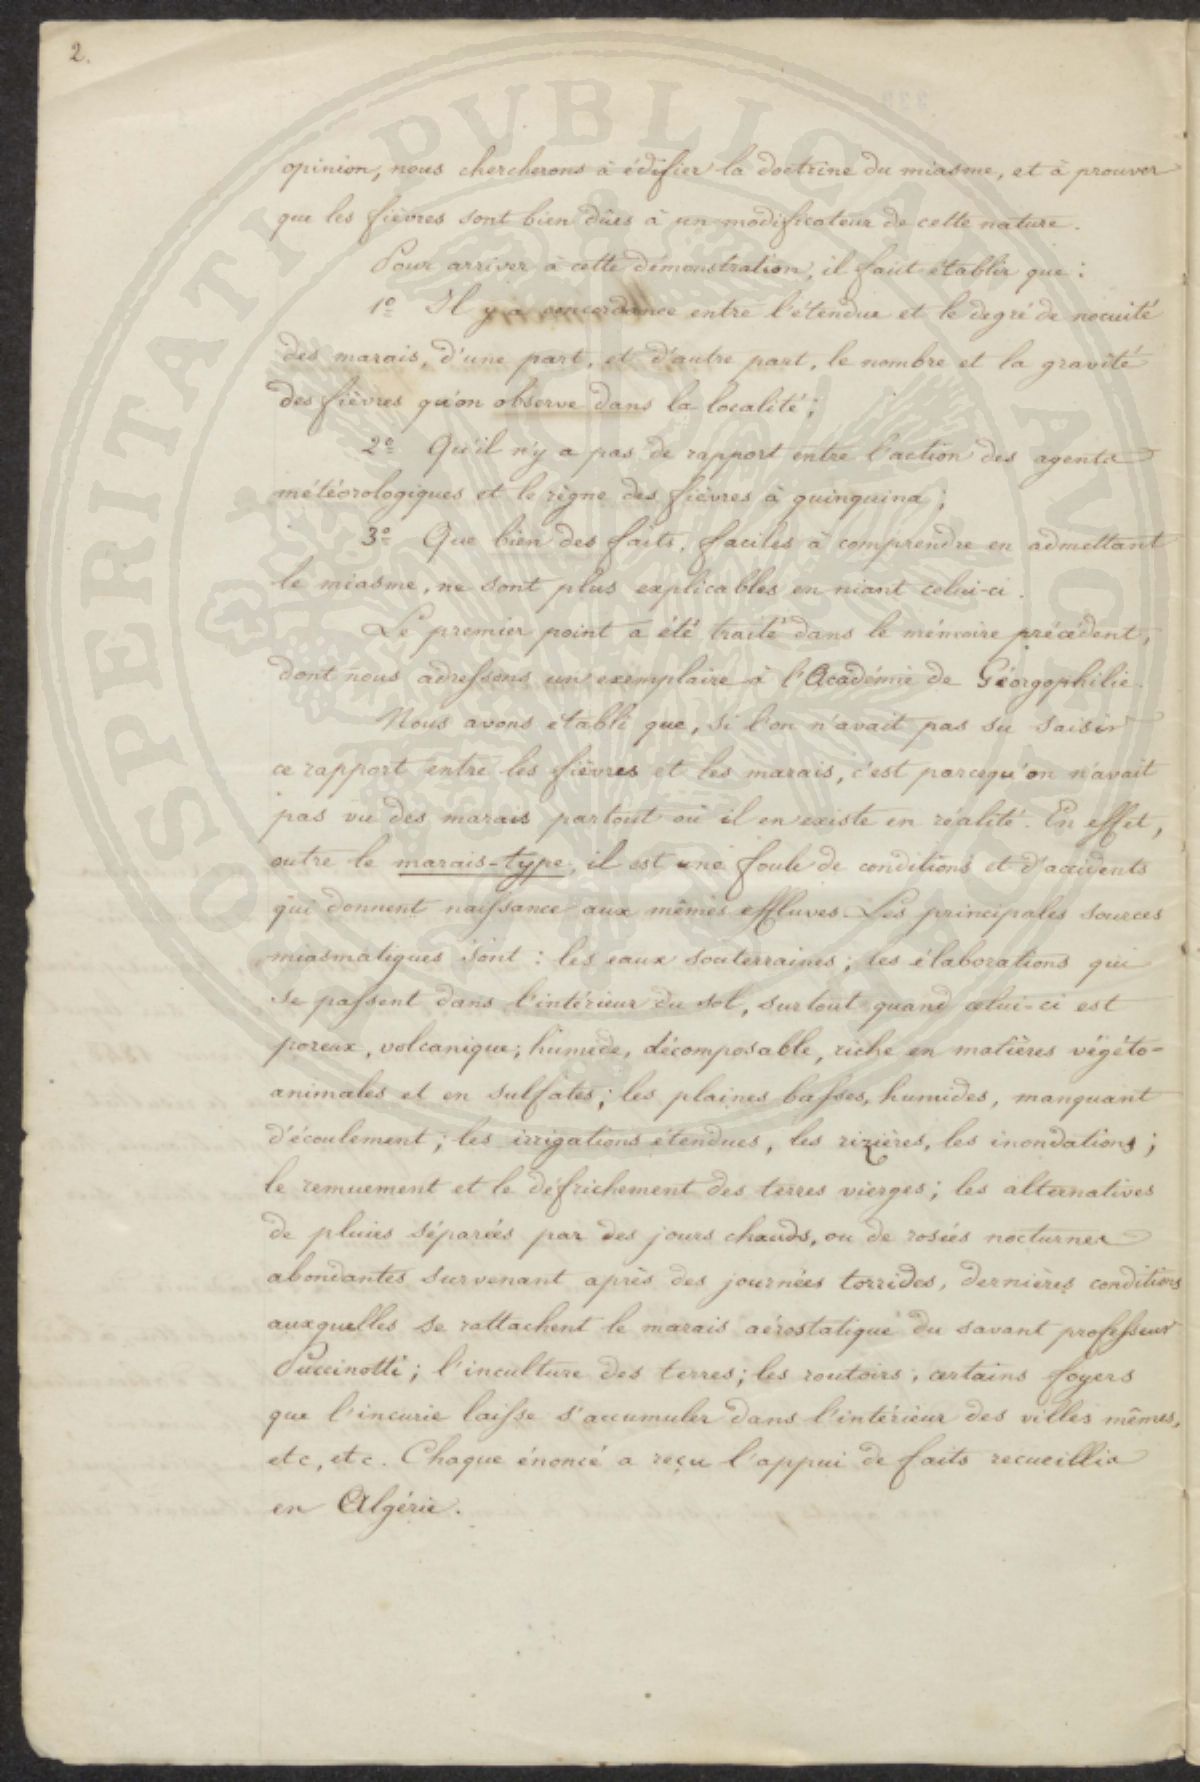 2.
opinion, nous chercherons à édifier la doctrine du miasme, et à prouver
que les fièvres sont bien dûes à un modificateur de cette nature.
Pour arriver à cette démonstration, il faut établir que :
1º Il y a concordance entre l'étendue et le degré de nocuité
des marais, d'une part, et d'autre part, le nombre et la gravité
des fièvres qu'on observe dans la localité ;
2º Qu'il n'y a pas de rapport entre l'action des agents
météorologiques et le règne des fièvres à quinquina ;
3º Que bien des faits, faciles à comprendre en admettant
le miasme, ne sont plus explicables en niant celui-ci.
Le premier point a été traité dans le mémoire précédent,
dont nous adressons un exemplaire à l'Académie de Géorgophilie.
Nous avons établi que, si l'on n'avait pas su saisir
ce rapport entre les fièvres et les marais, c'est parcequ'on n'avait
pas vu des marais partout où il en existe en réalité. En effet,
outre le marais-type, il est une foule de conditions et d'accidents
qui donnent naissance aux mêmes effluves. Les principales sources
miasmatiques sont : les eaux souterraines ; les élaborations qui
se passent dans l'intérieur du sol, surtout quand celui-ci est
poreux, volcanique ; humide, décomposable, riche en matières végéto-
animales et en sulfates ; les plaines basses, humides, manquant
d'écoulement ; les irrigations étendues, les rizières, les inondations ;
le remuement et le défrichement des terres vierges ; les alternatives
de pluies séparées par des jours chauds, ou de rosées nocturnes
abondantes survenant après des journées torrides, dernières conditions
auxquelles se rattachent le marais aérostatique du savant professeur
Puccinotti ; l'inculture des terres ; les routoirs ; certains foyers
que l'incurie laisse s'accumuler dans l'intérieur des villes mêmes,
etc, etc. Chaque énoncé a reçu l'appui de faits recueillis
en Algérie.
PROSPERITATI PUBLICAE AUGENDAE